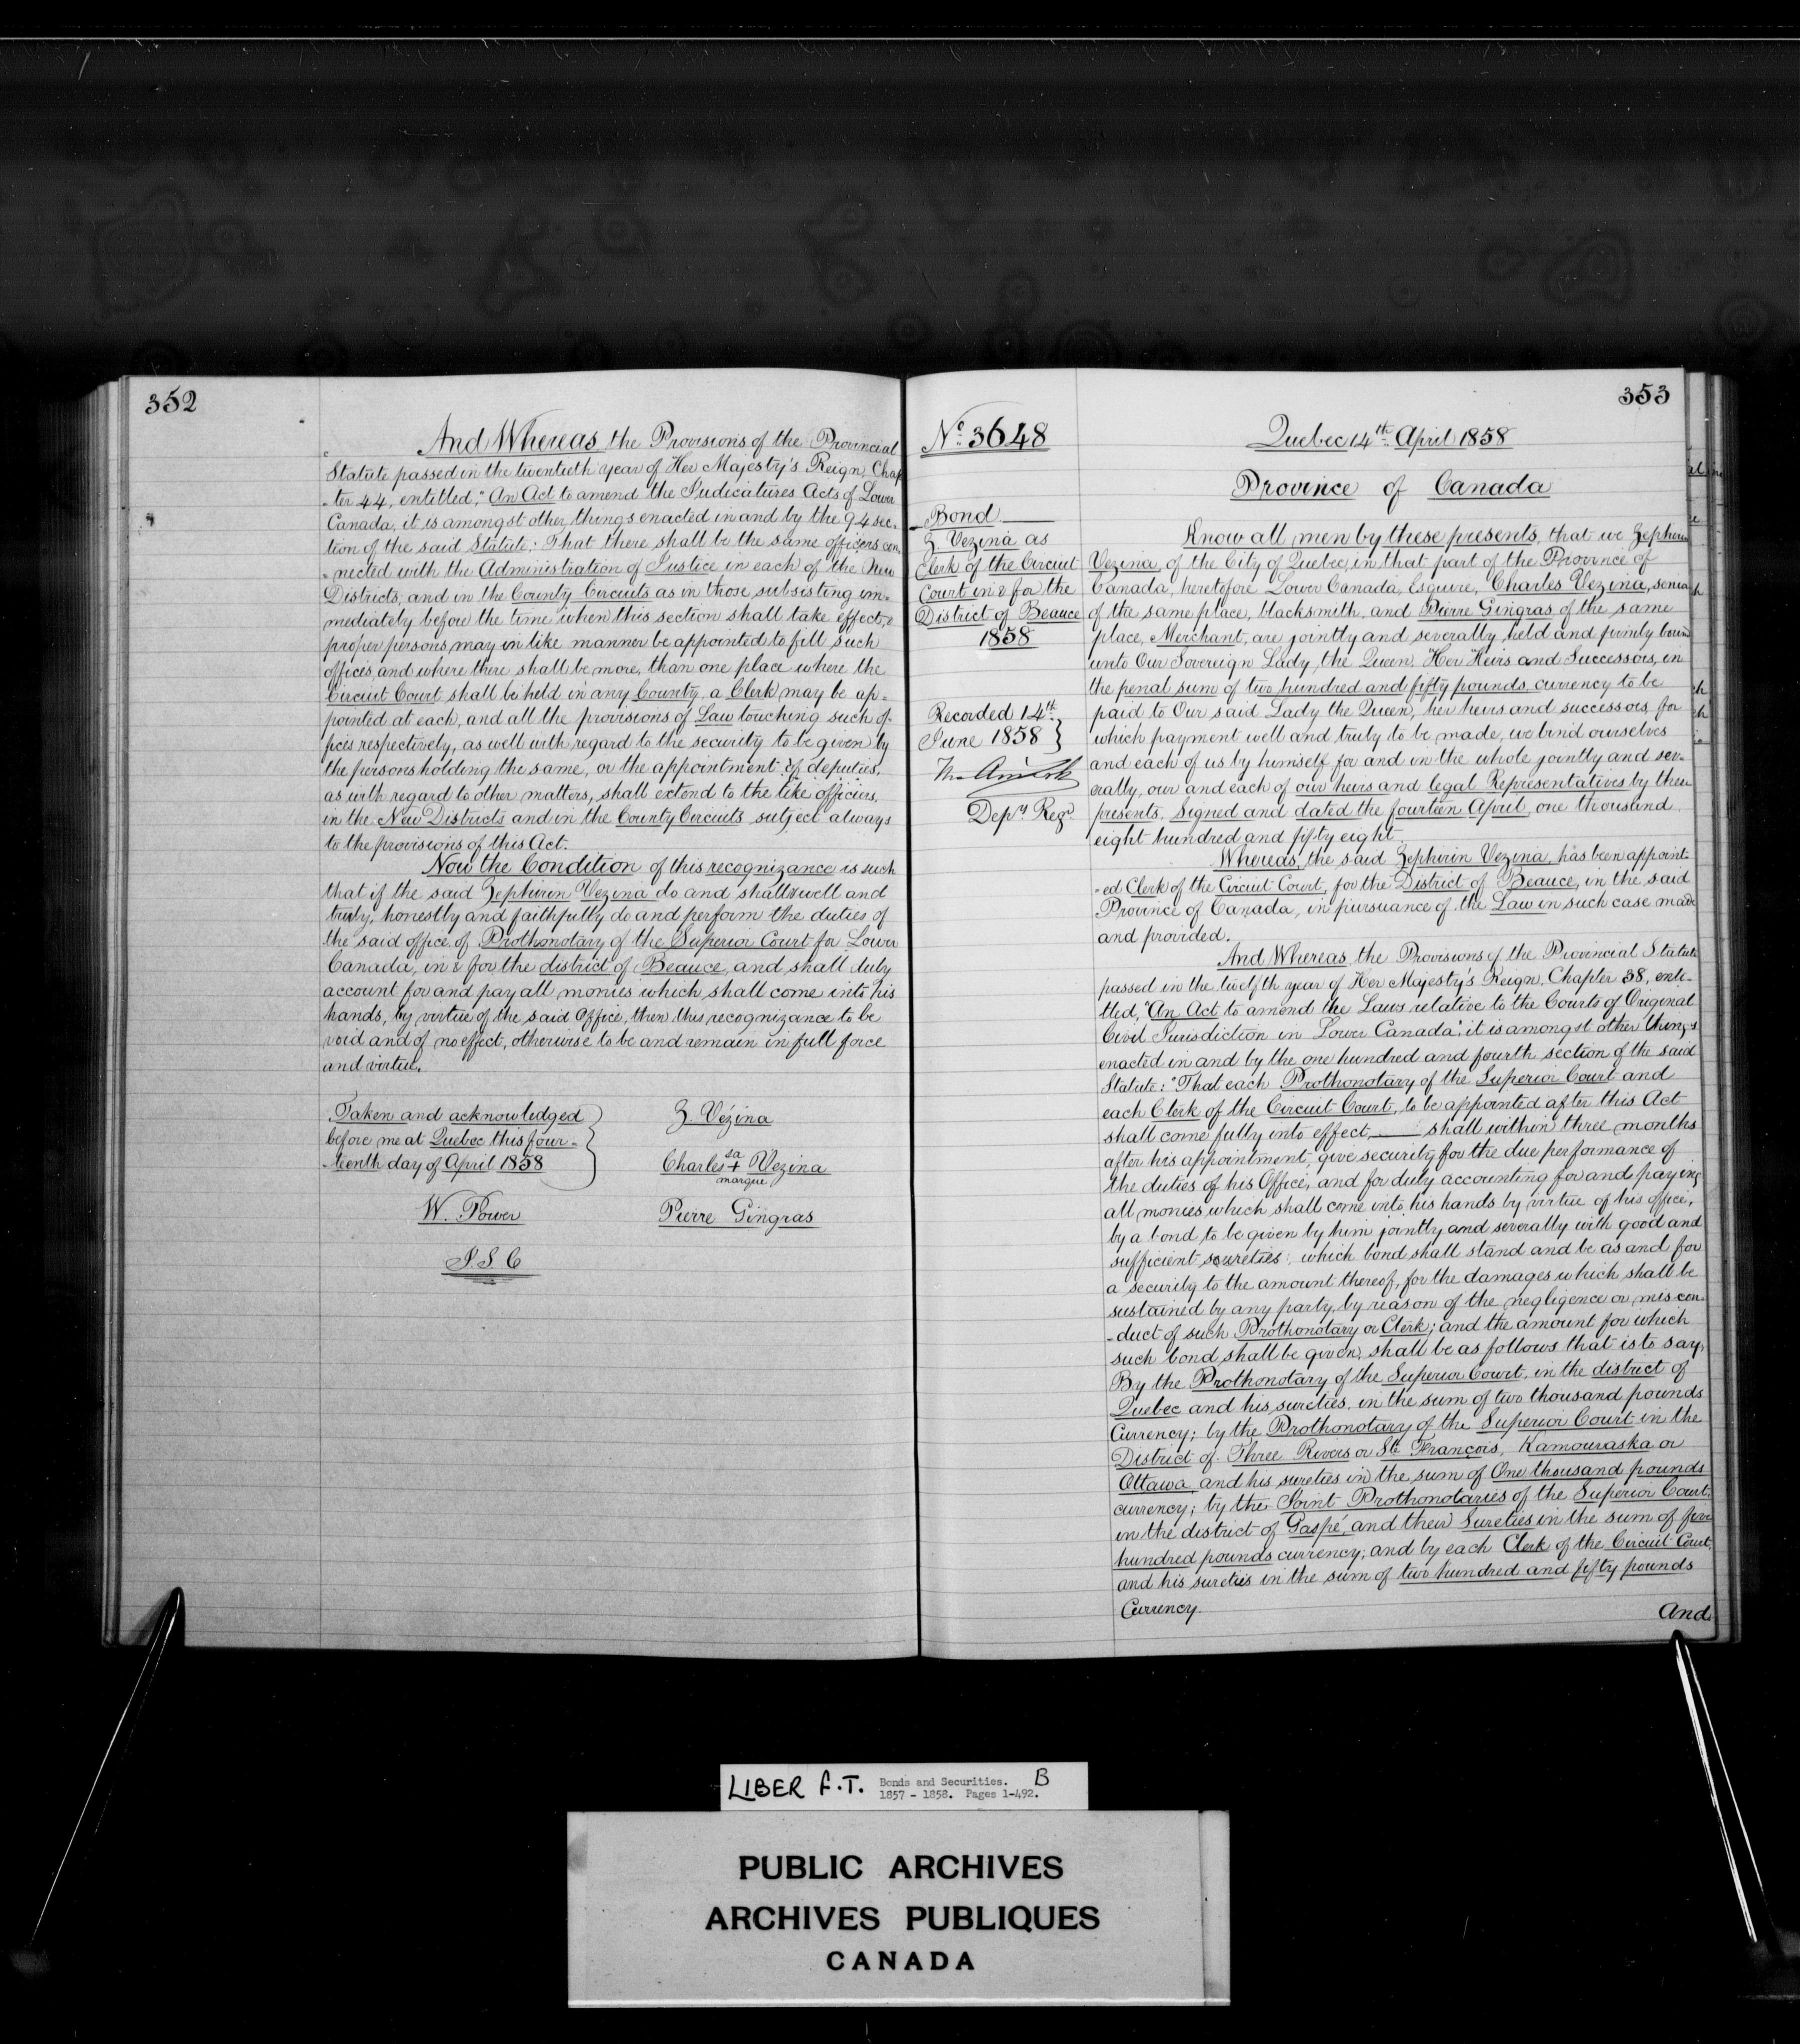 352
And Whereas the Provisions of the Provincial
Statute passed in the twentieth year of Her Majesty's Reign Chap
-ter 44, entitled, "An Act to amend the Judicatures Acts of Lower
Canada, it is amongst other things enacted in and by the 94 sec-
tion of the said Statute: That there shall be the same officers con-
-nected with the Administration of Justice in each of the New
Districts, and in the County Circuits as in those subsisting im-
mediately before the time when this section shall take effect, &
proper persons may in like manner be appointed to fill such
offices, and where there shall be more than one place where the
Circuit Court shall be held in any County, a Clerk may be ap=
pointed at each, and all the provisions of Law touching such of-
fices respectively, as well with regard to the security to be given by
the persons holding the same, or the appointment of deputies,
as with regard to other matters, shall extend to the like officers,
in the New Districts and in the County Circuits subject always
to the provisions of this Act.
Now the Condition of this recognizance is such
that if the said Zephirin Vezina do and shall well and
truly, honestly and faithfully do and perform the duties of
the said office of Prothonotary of the Superior Court for Lower
Canada, in & for the district of Beauce, and shall duly
account for and pay all monies which shall come into his
hands, by virtue of the said Office, then this recognizance to be
void and of no effect, otherwise to be and remain in full force
and virtue.
Taken and acknowledged
before me at Quebec this four-
-teenth day of April 1858
W. Power
J. S. C
Z. Vézina
Charles sa + marque Vezina
Pierre Gingras
353
No. 3648
Bond
Z. Vezina as
Clerk of the Circuit
Court in & for the
District of Beauce
1858
Recorded 14th
June 1858
Depy Regr
Quebec 14th April 1858
Province of Canada
Know all men by these presents, that we Zephirin
Vezina, of the City of Quebec, in that part of the Province of
Canada, heretofore Lower Canada, Esquire, Charles Vezina, senior
of the same place, blacksmith, and Pierre Gingras of the same
place, Merchant, are jointly and severally held and firmly bound
unto Our Sovereign Lady, the Queen, Her Heirs and Successors, in
the penal sum of two hundred and fifty pounds, currency to be
paid to Our said Lady the Queen, her heirs and successors, for
which payment well and truly to be made, we bind ourselves
and each of us by himself for and in the whole jointly and sev-
erally, our and each of our heirs and legal Representatives by these
presents. Signed and dated the fourteen April, one thousand
eight hundred and fifty eight
Whereas, the said Zephirin Vezina, has been appoint-
-ed Clerk of the Circuit Court, for the District of Beauce, in the said
Province of Canada, in pursuance of the Law in such case made
and provided.
And Whereas, the Provisions of the Provincial Statute
passed in the twelfth year of Her Majesty's Reign, Chapter 38, enti-
tled, "An Act to amend the Laws relative to the Courts of Original
Civil Jurisdiction in Lower Canada", it is amongst other things
enacted in and by the one hundred and fourth section of the said
Statute: "That each Prothonotary of the Superior Court and
each Clerk of the Circuit Court, to be appointed after this Act
shall come fully into effect, —— shall within three months
after his appointment, give security for the due performance of
the duties of his Office, and for duly accounting for and paying
all monies which shall come into his hands by virtue of his office,
by a bond to be given by him jointly and severally with good and
sufficient soureties, which bond shall stand and be as and for
a security to the amount thereof, for the damages which shall be
sustained by any party, by reason of the negligence or miscon-
-duct of such Prothonotary or Clerk; and the amount for which
such bond shall be given, shall be as follows that is to say,
By the Prothonotary of the Superior Court, in the district of
Quebec and his sureties, in the sum of two thousand pounds
Currency; by the Prothonotary of the Superior Court in the
District of Three Rivers or St. François, Kamouraska or
Ottawa and his sureties in the sum of One thousand pounds
currency; by the Joint Prothonotaries of the Superior Court,
in the district of Gaspé, and their Sureties in the sum of five
hundred pounds currency; and by each Clerk of the Circuit Court,
and his sureties in the sum of two hundred and fifty pounds
Currency.
And
LIBER F.T. Bonds and Securities. B
1857 - 1858. Pages 1-492.
PUBLIC ARCHIVES
ARCHIVES PUBLIQUES
CANADA